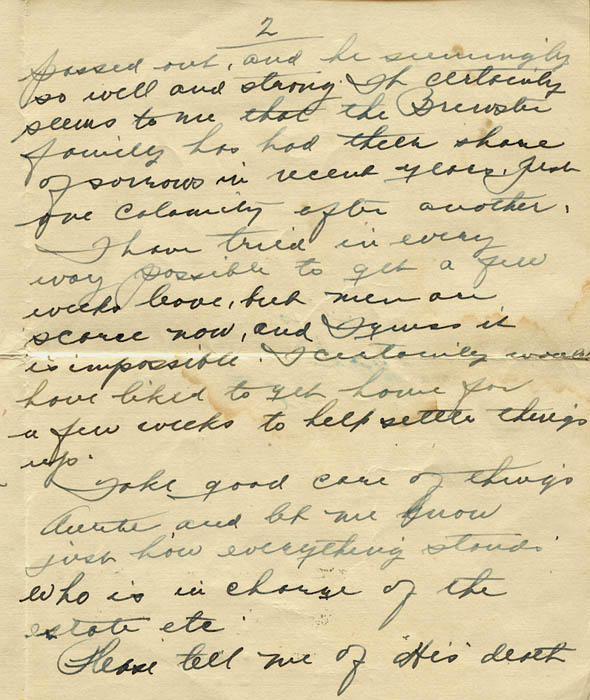 2
passed out, and he seemingly
so well and strong. It certainly
seems to me that the Brewster
family has had their share
of sorrows in recent years. Just
one calamity after another.
I have tried in every
way possible to get a few
weeks leave, but men are
scarce now, and I guess it
is impossible. I certainly would
have liked to get home for
a few weeks to help settle things
up.
Take good care of things
Auntie and let me know
just how everything stands.
Who is in charge of the
estate etc.
Please tell me of His death